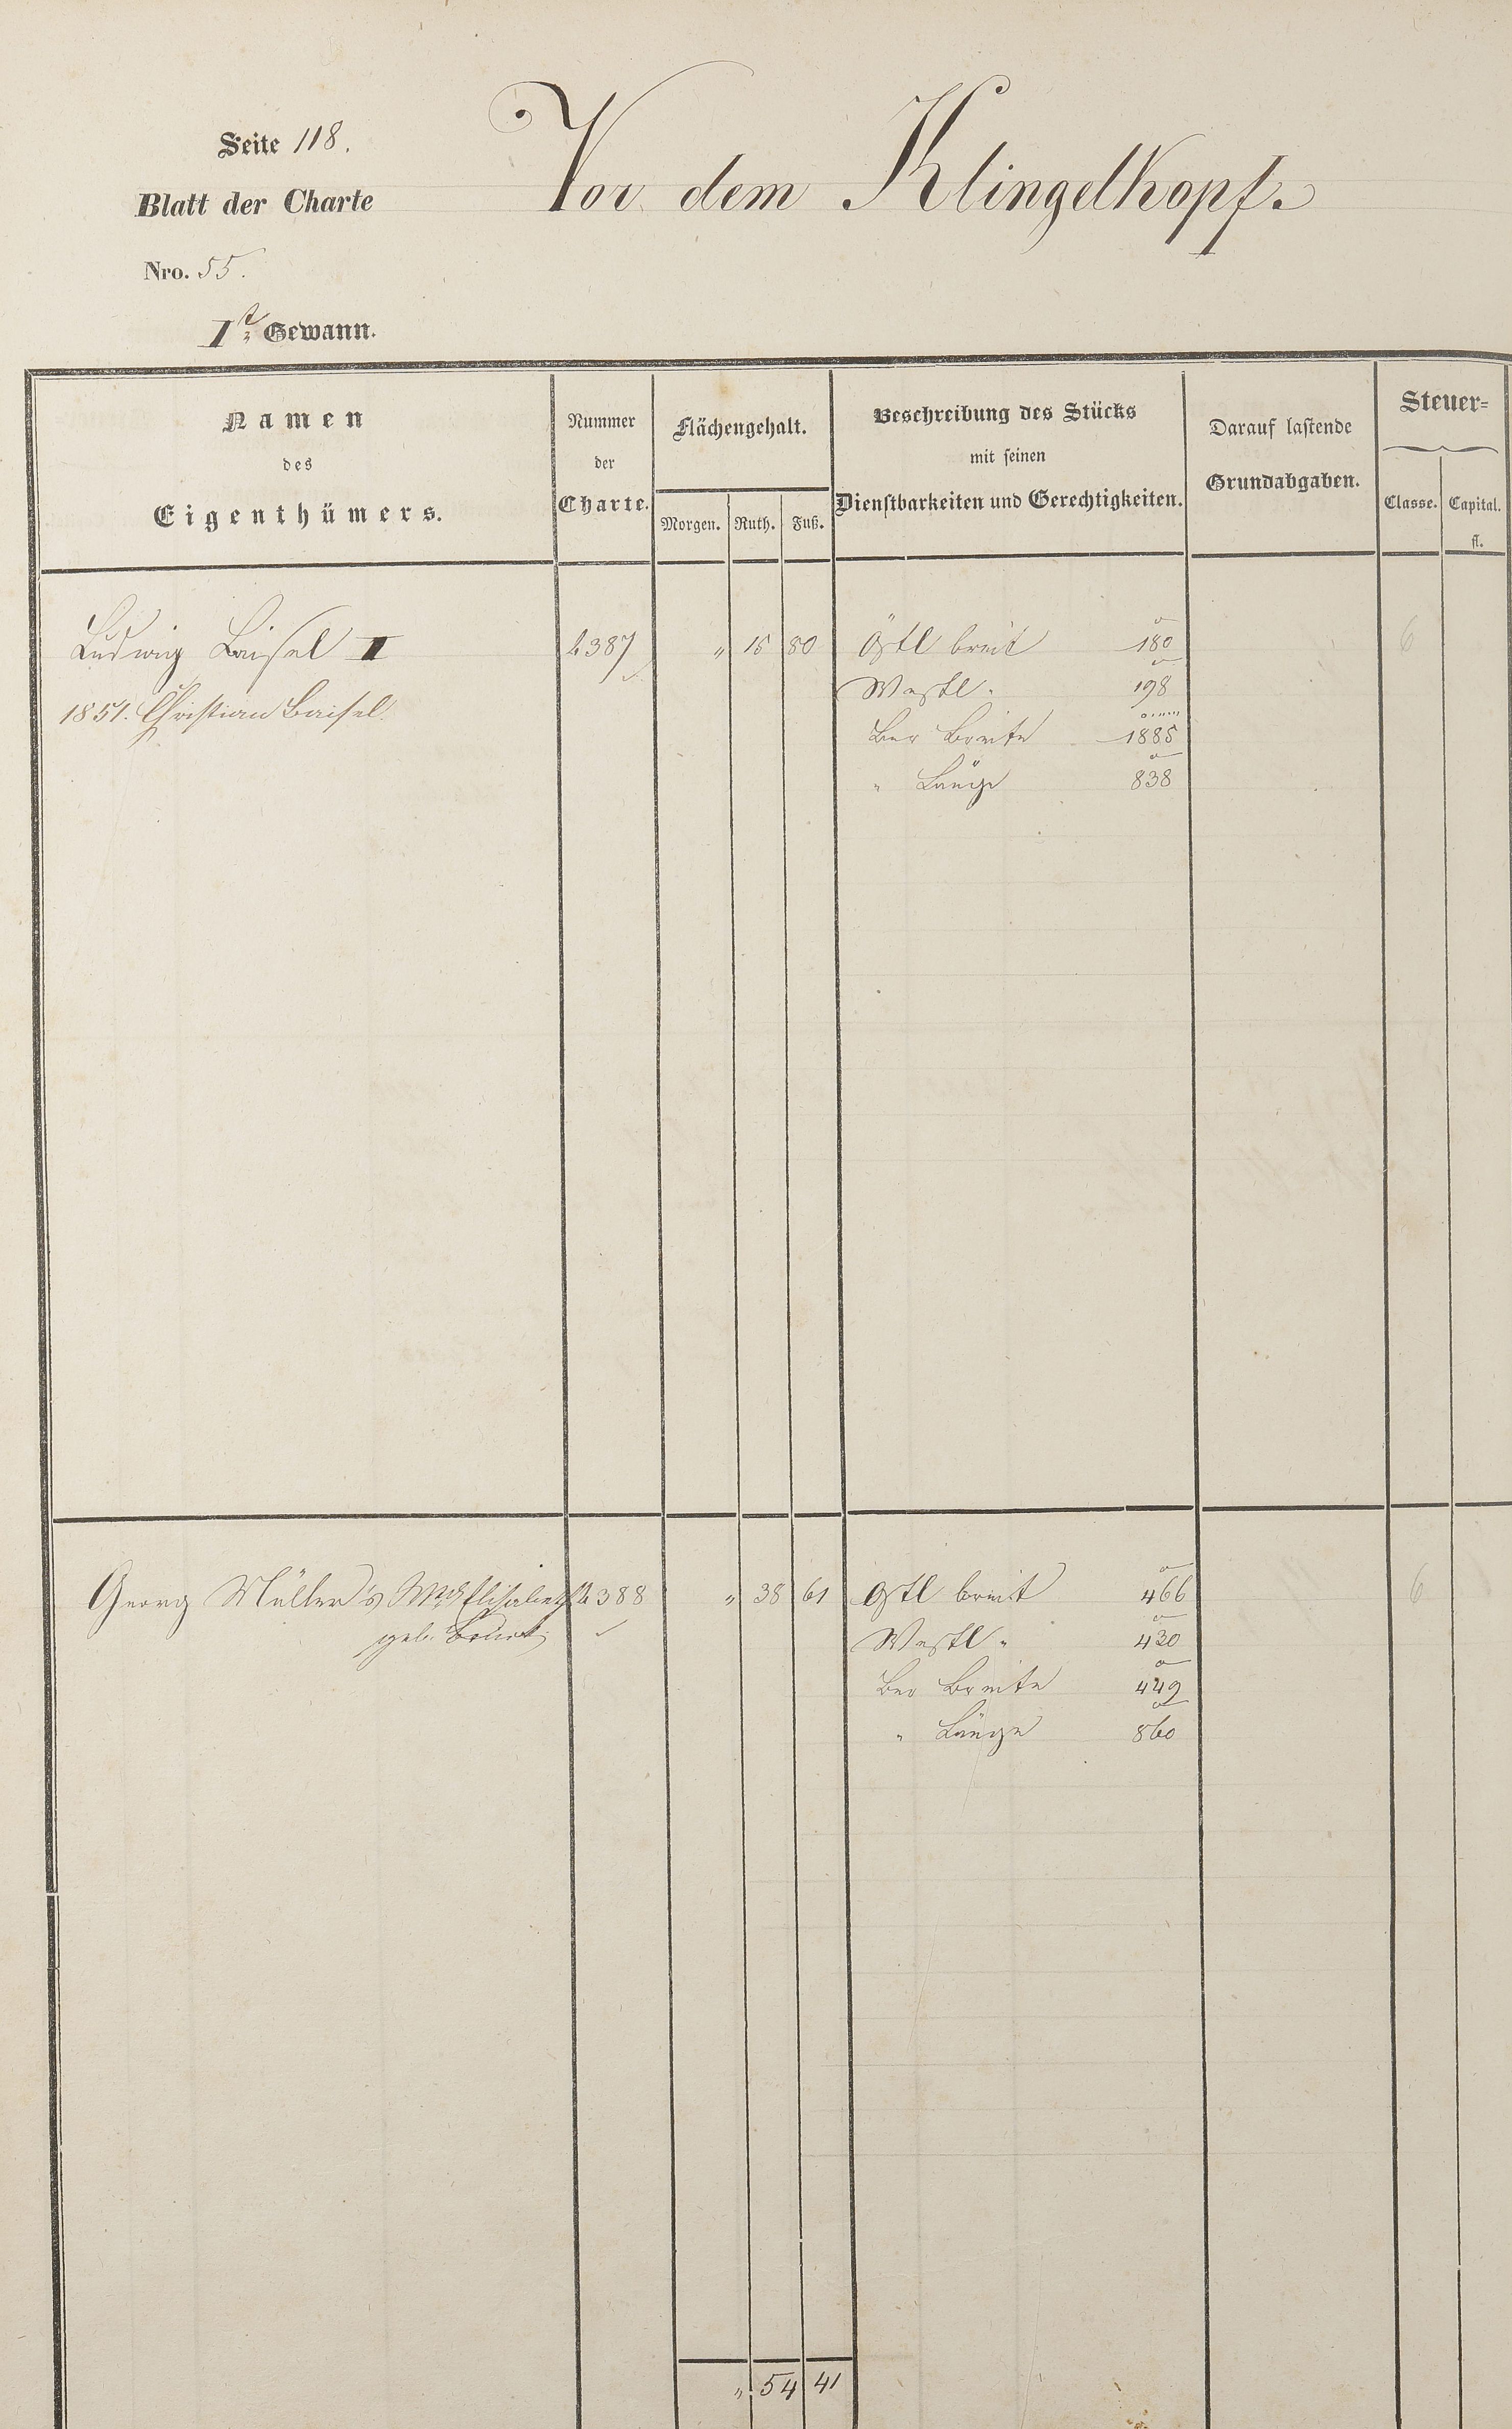 Seite 118.
Vor dem Klingelkopf.
Blatt der Charte
Nro. 55.
I.te Gewann.
Namen
des
Eigenthümers.
Nummer
der
Charte.
Flächengehalt.
Morgen. Ruth. Fuß.
Beschreibung des Stücks
mit seinen
Dienstbarkeiten und Gerechtigkeiten.
Darauf lastende
Grundabgaben.
Steuer=
Classe. Capital.
fl.
Ludwig Beisel II 4387 " 15 80 Östl breit 180 6
Westl. 198
1851. Christian Beisel.
Ber Breite 1885
" Länge 838
Georg Müller's Elisabeth 4388 " 38 61 Östl breit 466 6
geb. Westl " 430
Ber Breite 449
" Länge 860
" 54 41